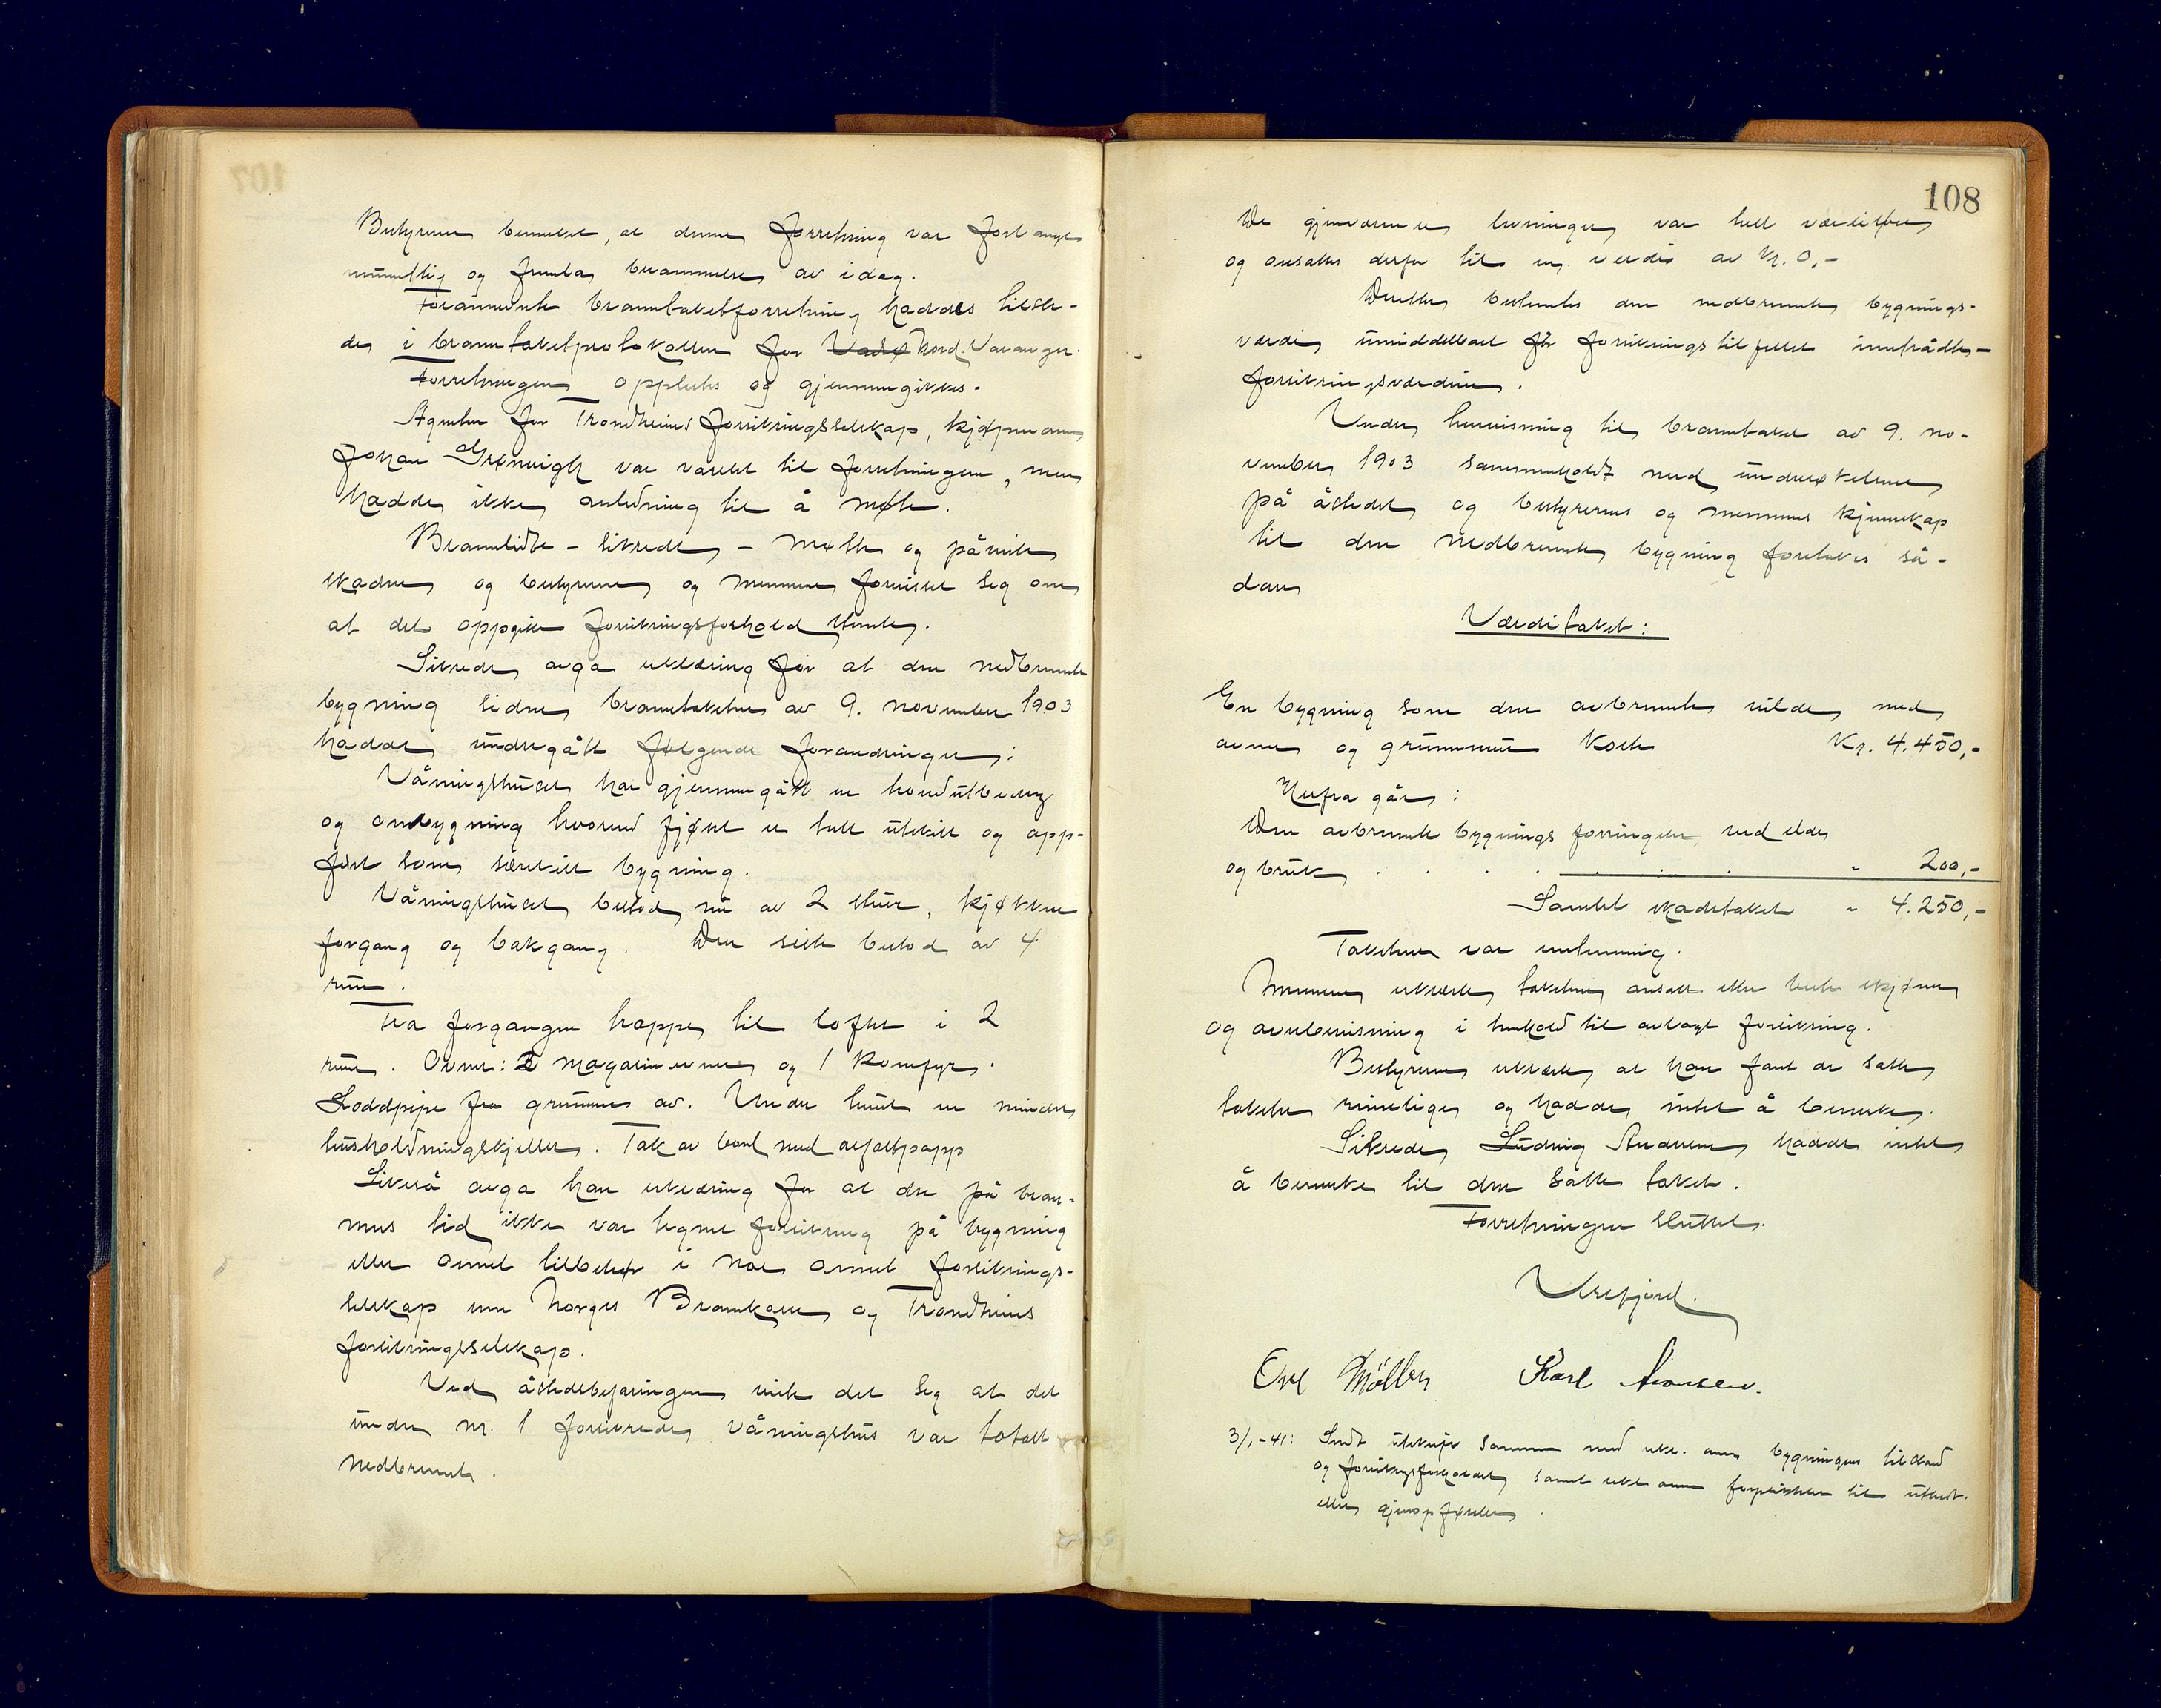 Bestyreren bemerket, at denne forretning var forlangt
muntlig og fremtas berammelse av idag.
Forannevnte branntakstforretning haddes tilste-
de i branntakstprotokollen for Vadsø Nord-Varanger.
Forretningen opplestes og gjennemgikkes.
Agenten for Trondheims forsikringsselskap, kjøpmann
Johan Grønvigh var varslet til forretningen, men
hadde ikke anledning til å møte.
Brannlidte - sikrede - møtte og påviste
skaden og bestyreren og mennene forvisset seg om
at det oppgitte forsikringsforhold stemte.
Sikrede avga erklæring for at den nedbrente
bygning siden branntaksten av 9. november 1903
hadde undergått følgende forandringer:
Våningshuset har gjennemgått en hovedutbedring
og ombygning hvorved fjøset er helt utskilt og opp-
ført som særskilt bygning.
Våningshuset bestod nu av 2 stuer, kjøkken
forgang og bakgang. Den siste bestod av 4
rum.
Fra forgangen trappe til loftet i 2
rum. Ovner: 2 magasinovner og 1 komfyr.
Loddpipe fra grunnen av. Under huset en mindre
husholdningskjeller. Tak av bord med asfaltpapp
Likeså avga han erklæring for at der på bran-
nens tid ikke var tegnet forsikring på bygning
eller annet tilbehør i noe annet forsikrings-
selskap enn Norges Brannkasse og Trondheims
forsikringsselskap.
Ved åstedsbefaringen viste det seg at det
under nr. 1 forsikrede våningshus var totalt
nedbrent.
108
De gjenværende levninger var helt verdiløse
og ansattes derfor til en verdi av kr. 0,-
Derette bestemtes den nedbrente bygnings-
verdi umiddelbart før forsikringstilfellet inntrådte -
forsikringsverdien.
Under henvisning til branntakst av 9. no-
vember 1903 sammenholdt med undersøkelsene
på åstedet og bestyrerens og mennenes kjennskap
til den nedbrente bygning foretokes så-
dan
Værditakst:
En bygning som den avbrente vilde med
ovner og grunnmur koste Kr. 4.450,-
Herfra går:
Den avbrente bygnings forringelse ved elde
og bruk . . . . . . . " 200,-
Samlet skadetakst " 4.250,-
Taksten var enstemmig.
Mennene erklærte taksten ansatt efter beste skjønn
og overbevisning i henhold til avlagt forsikring.
Bestyreren erklærte at han fant de satte
takster rimelige og hadde intet å bemerke.
Sikrede Ludvig Andersen hadde intet
å bemerke til den satte takst.
Forretningen sluttet.
Ursfjord.
Møller Karl
3/1-41: Sendt utskrift sammen med erkl. om bygningens tilstand
og forsikringsforholdet samt erkl. om forpliktelse til utbedr.
eller gjenopførelse.